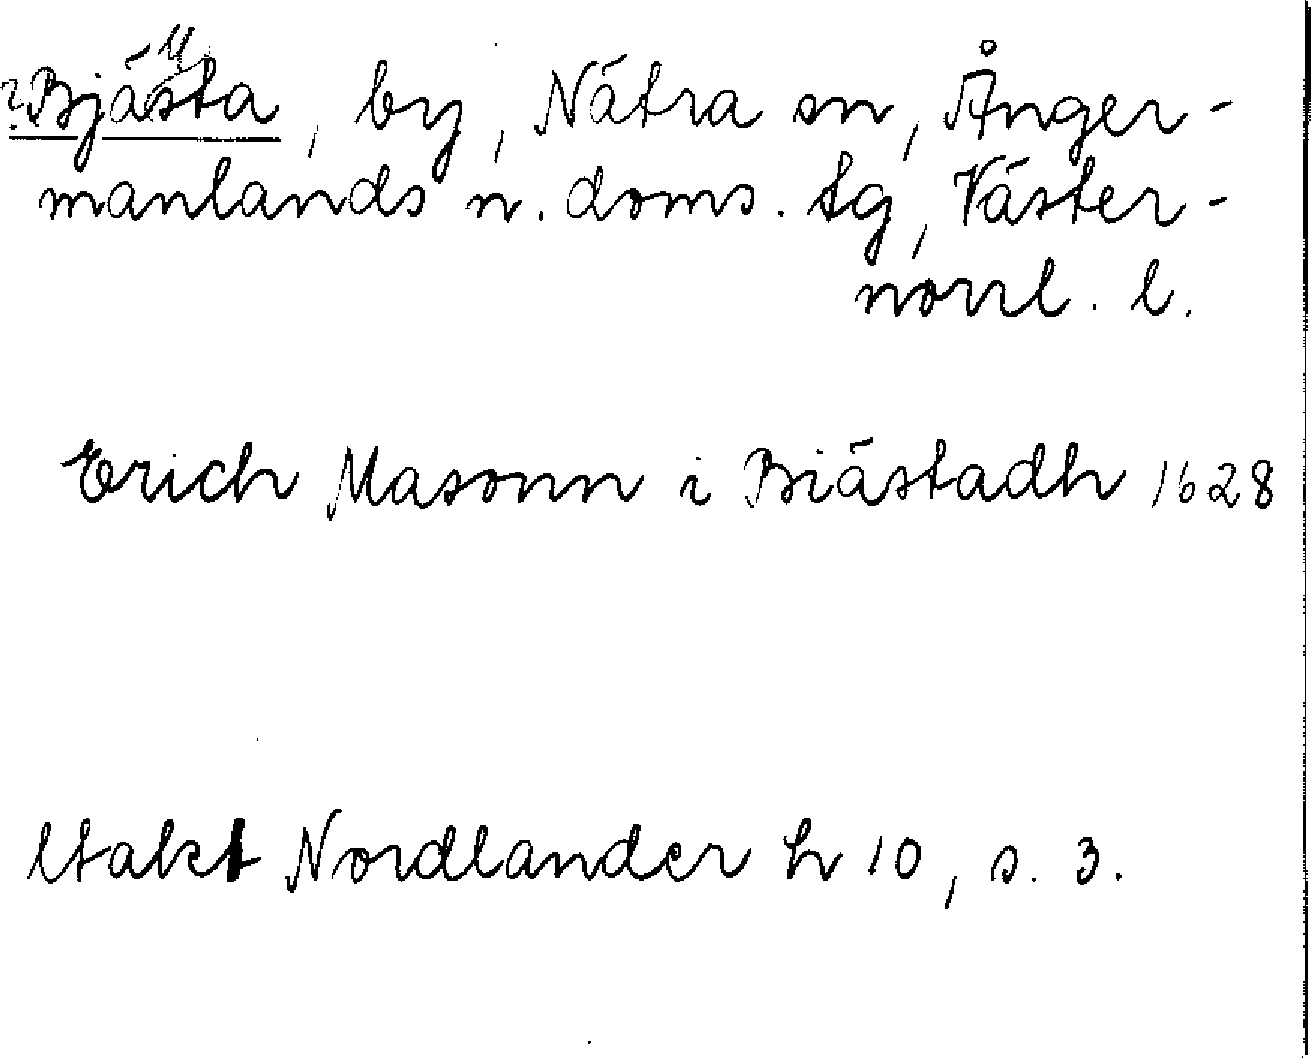 ?Bjästa, by, Nätra sn, Ånger-
manlands n. doms. tg, Väster-
norrl. l.
Erich Masonn i Biästadh 1628
Nordlander h 10, s. 3.